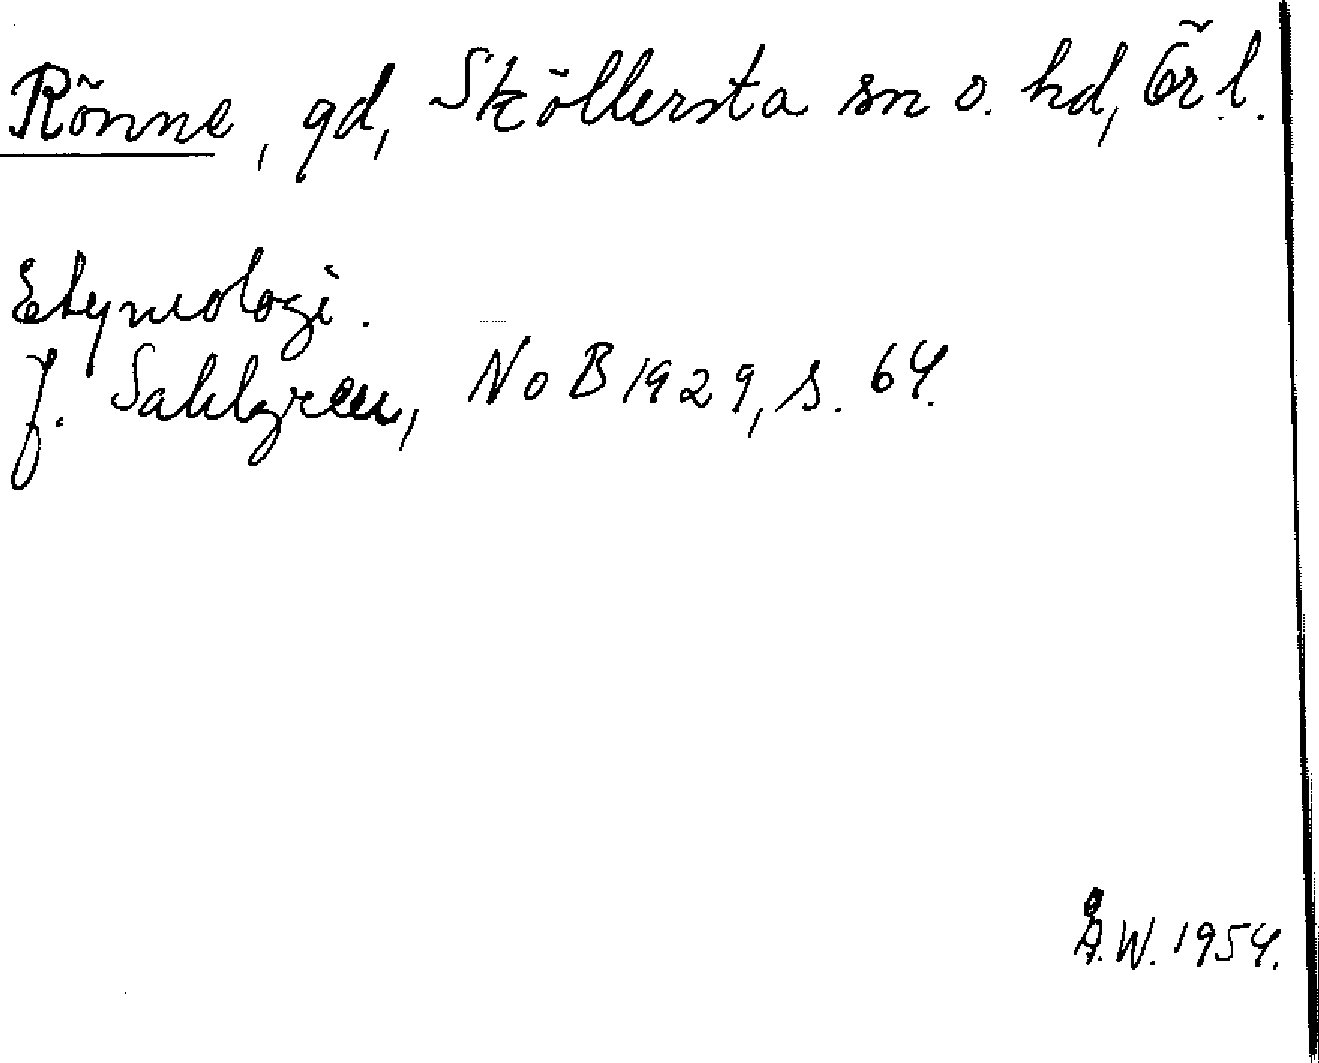 Rönne, gd, Sköllersta sn o. hd, Ör l.
Etymologi.
J. Sahlgren, NoB 1929, s. 64.
Å.W. 1954.